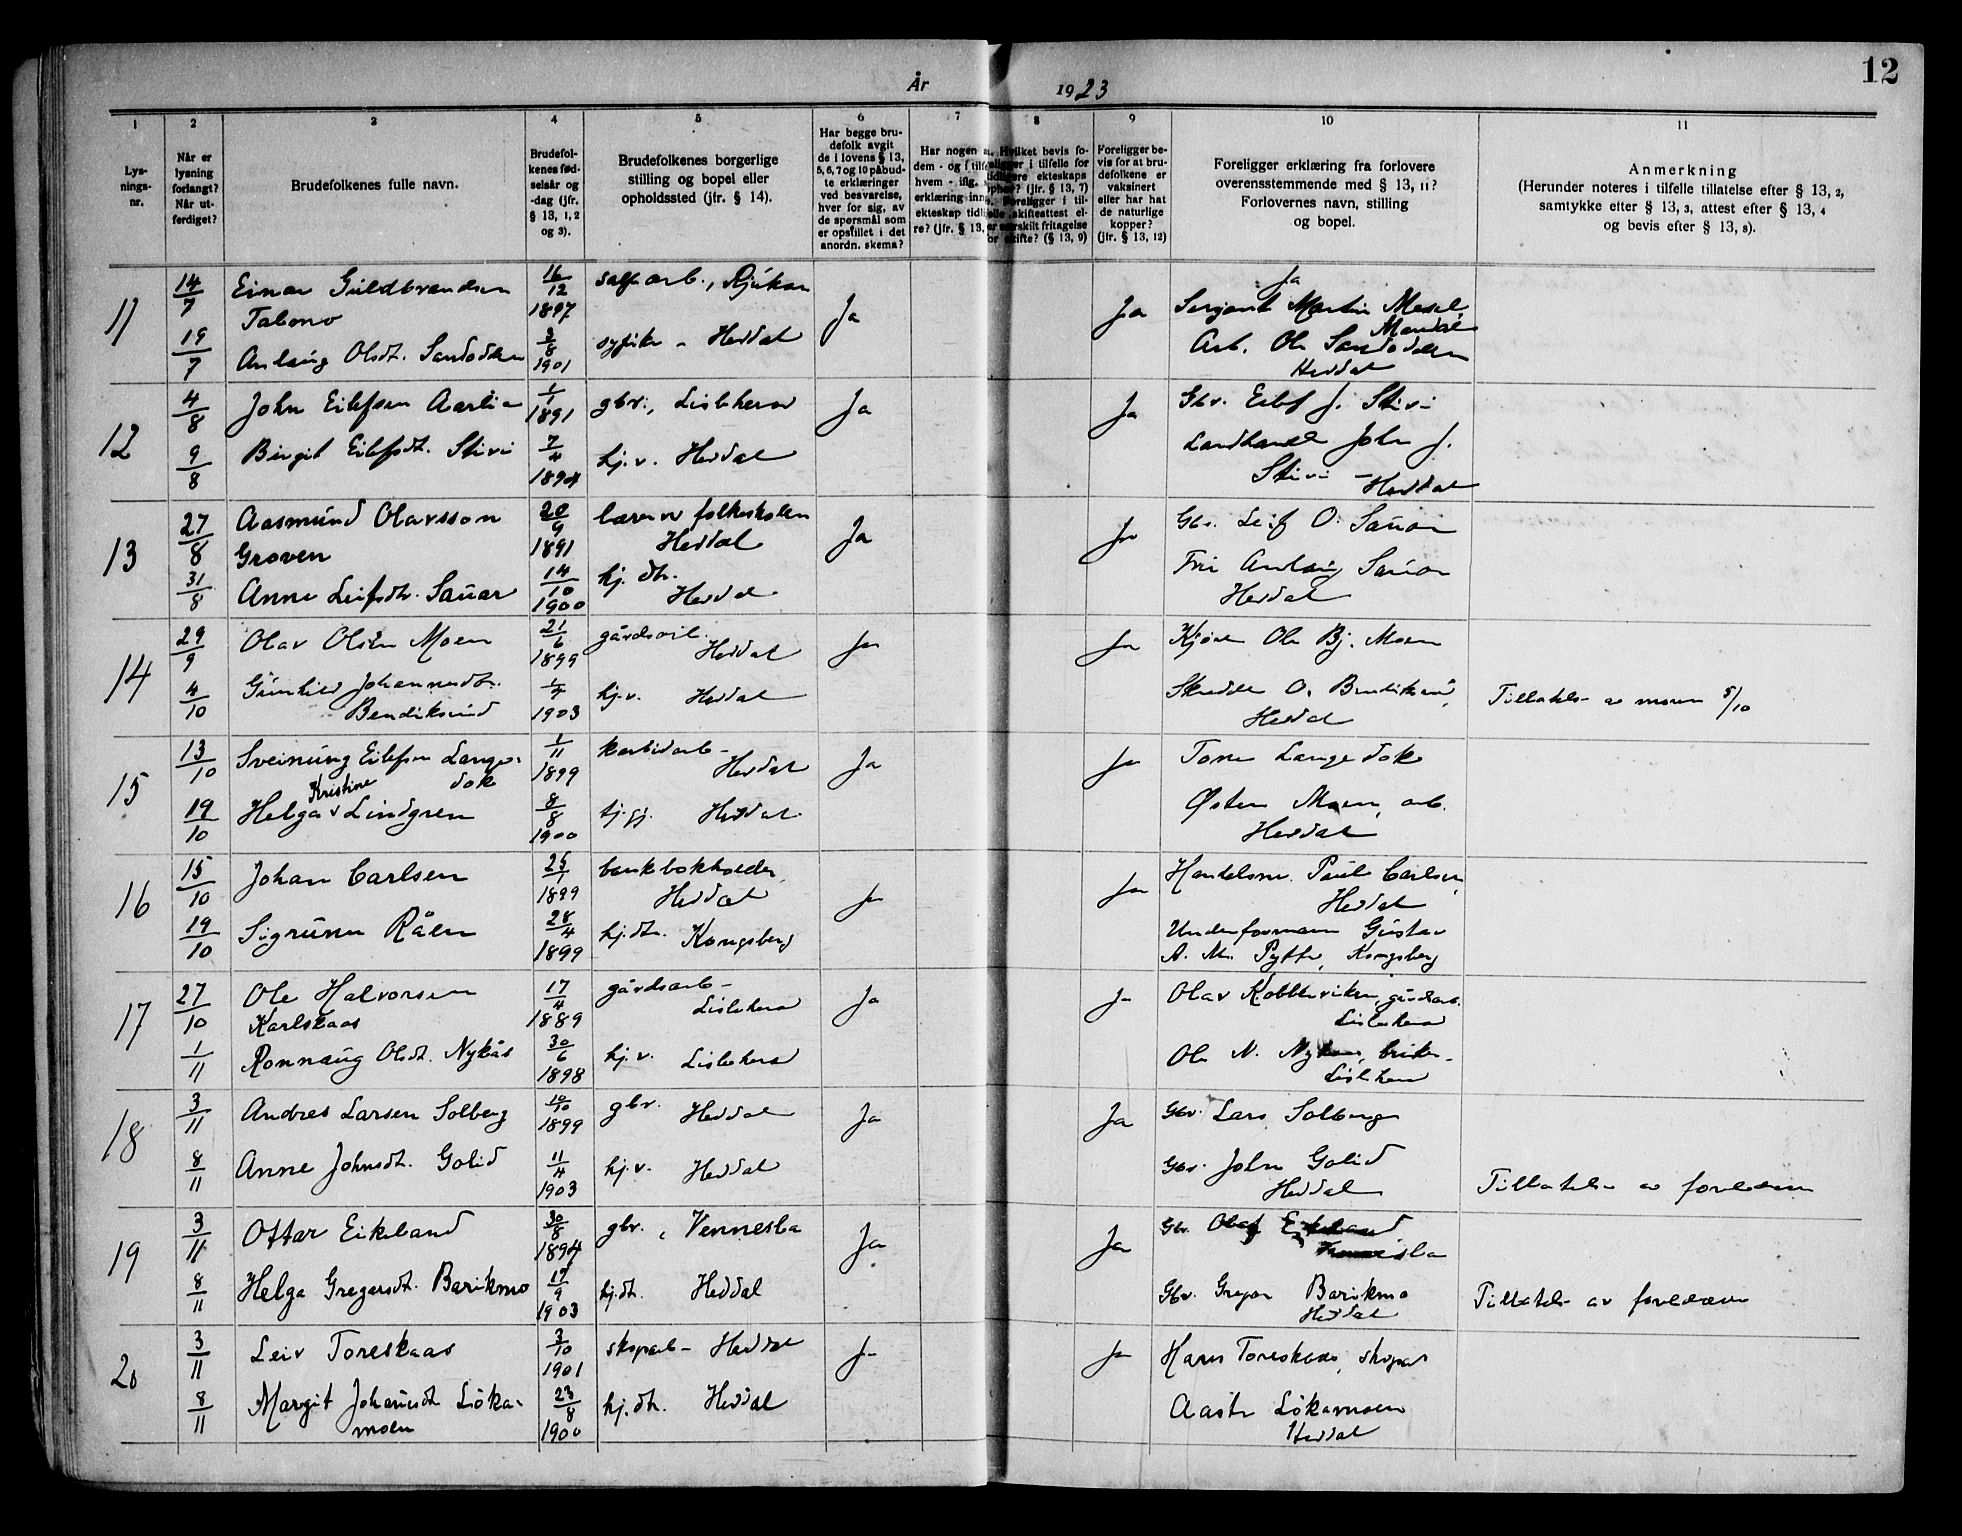 År 1923
12
1 2 3 4 5 6 7 8 9 10 11
Lys-
nings-
nr.
Når er
lysning
forlangt?
Når ut-
ferdiget?
Brudefolkenes fulle navn.
Brudefol-
kenes fød-
selsår og
-dag (jfr.
§ 13, 1, 2
og 3).
Brudefolkenes borgerlige
stilling og bopel eller
opholdssted (jfr. § 14).
Har begge bru-
defolk avgit
de i lovens § 13,
5, 6, 7 og 10 påbud-
te erklæringer
ved besvarelse,
hver for sig, av
de spørsmål som
er opstillet i det
anordn. skema?
Har nogen a
dem - og i tilfe
hvem - iflg.
erklæring inn
ekteskap tidl
re? (jfr. § 13,
Hvilket bevis fo-
religger i tilfelle for
tidligere ekteskaps
ophør? (jfr. § 13, 7)
Foreligger i til-
felle skifteattest el-
er særskilt fritagelse
for skifte? (§ 13, 9)
Foreligger be-
vis for at bru-
defolkene er
vaksinert
eller har hat
de naturlige
kopper?
(jfr. § 13, 12)
Foreligger erklæring fra forlovere
overensstemmende med § 13, 11?
Forlovernes navn, stilling
og bopel.
Anmerkning
(Herunder noteres i tilfelle tillatelse efter § 13, 2,
samtykke efter § 13, 3, attest efter § 13, 4
og bevis efter § 13, 8).
11
14/7 Einar Guldbrandsen 16/12 1897 arb., Rjukan Ja Ja Ja
Talmo Serjant Martin
Mandal
19/7 Anlaug Olsdt. Sandodden 3/8 1901 Heddal Arb. Ole Sandodden
Heddal
12
4/8 John Eilefsen Aarlia 1/1 1891 gbr., Lisleherad Ja Ja Gbr. Eilef J. Stivi
9/8 Birgit Eilefsdt. Stivi 7/4 1894 hj.v. Heddal Landhandl John J.
Stivi - Heddal
13
27/8 Aasmund Olavsson 20/9 1891 lærer v folkeskolen Ja Ja Gbr. Leif O. Sauar
Groven Heddal
31/8 Anne Leifsdtr. Sauar 14/10 1900 hj. dtr. Fru Anlaug Sauar
Heddal Heddal
14
29/9 Olav Olsen Moen 21/6 1899 gårdsarb. Ja Ja Ole Bj. Moen
Heddal
4/10 Gunhild Johannesdt. 1/7 1903 hj.v. Heddal O. Bendiksrud, Tillatelse av moren 5/10
Bendiksrud Heddal
15
13/10 Sveinung Eilefsen Lange- 1/11 1899 karbidarb- Ja Ja Tone Langedok
dok Heddal
Kristine
19/10 Helga v Lindgren 8/8 1900 tj.pj. Heddal Østen Moen, arb.
Heddal
16
15/10 Johan Carlsen 25/1 1899 bankbokholder, Ja Ja Handelsm. Paul Carlsen,
Heddal Heddal
19/10 Sigrunn Råen 28/4 1899 hj.dtr. Kongsberg Underformann Gustav
A. M. Pytte, Kongsberg
17
27/10 Ole Halvorsen 17/4 1889 gårdsarb- Ja Ja Olav Kobberviken, gårdsarb.
Karlskaas Lisleherad Lisleherad
1/11 Ronnaug Olsdt. Nykås 30/6 1898 hj.v. Lisleherad Ole N. Nykaas, bruker-
Lisleherad
18
3/11 Andres Larsen Solberg 10/10 1899 gbr. Heddal Ja Ja Gbr. Lars Solberg
8/11 Anne Johnsdt. Golid 11/4 1903 hj.v. Heddal Gbr. John Golid Tillatelse av foreldrene
Heddal
19
3/11 Ottar Eikeland 30/8 1894 gbr., Vennesla Ja Ja Gbr. Olaf Eikeland
Vennesla
8/11 Helga Gregersdt. Barikmo 17/9 1903 hj.dt. Heddal Gbr. Gregar Barikmo Tillatelse av foreldrene
Heddal
20
3/11 Leiv Toreskaas 3/10 1901 skogarb- Heddal Ja Ja Hans Toreskaas, skogarb
8/11 Margit Johansdt Løka- 23/8 1900 hj.dtr. Heddal Aaste Løkamoen
moen Heddal